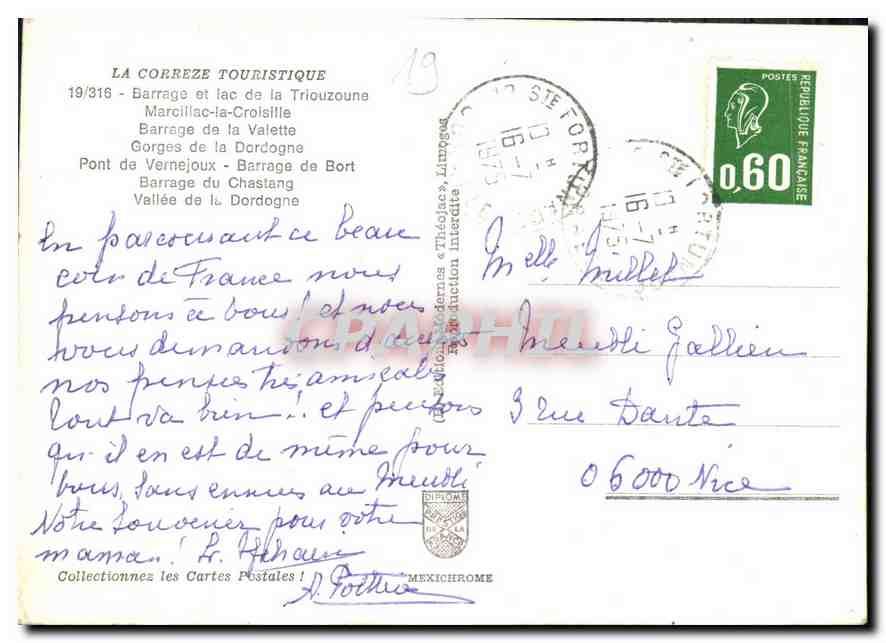 LA CORREZE TOURISTIQUE
19/316 - Barrage et lac de la Triouzoune
Marcillac-la-Croisille
Barrage de la Valette
Gorges de la Dordogne
Pont de Vernejoux - Barrage de Bort
Barrage du Chastang
Vallée de la Dordogne
En parcourant ce beau
coin de France nous
pensons à vous! et nous
vous demandons d'accepter
nos pensées très amicales
Tout va bien!. et pensons
qu'il en est de même pour
vous, sans ennuis au Meublé
Notre souvenir pour votre
maman!
Collectionnez les Cartes Postales !
19
(L) Editions Modernes «Théojac», Limoges
Reproduction interdite
DIPLOME
DE LA
FRANCE
MEXICHROME
CPAPHIL
STE FORTUNADE
10 H
16-7
1975
STE FORTUNADE
10 H
16-7
1975
POSTES
REPUBLIQUE FRANÇAISE
0,60
Melle Millet
Meublé Gallieni
3 rue Dante
06000 Nice